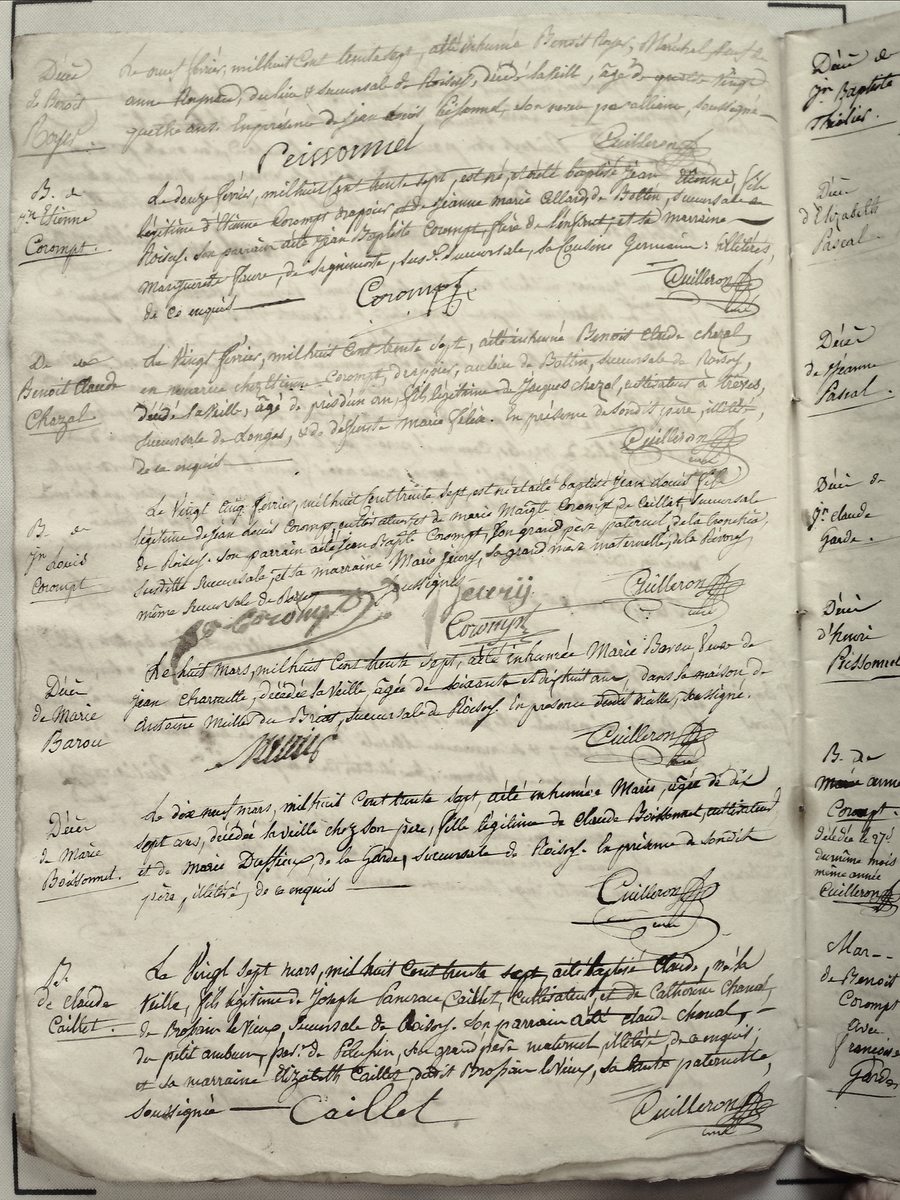 Décès
de Benoît
Royer.
Le onze février, mil huit cent trente sept, a été inhumé Benoit Royer, Maréchal,
du lieu & succursale de Roisey, décédé la veille, âgé de
quatre ans. En présence de jean Louis Peissonnel, son par alliance, soussigné
Peissonnel
Cuilleron
B. de
jn Etienne
Corompt.
Le douze février, mil huit cent trente sept, est né, et a été baptisé jean Etienne, fils
légitime d'Etienne Corompt drappier, et de jeanne marie Allard, de Bottin, succursale de
Roisey. Son parrain a été jean Baptiste Corompt, frère de l'enfant, et sa marraine
Marguerite Faure, de susd. succursale, sa Cousine Germaine: illitérés,
de ce enquis
Corompt
Cuilleron
curé
Benoit Claude
Chazal
Le Vingt février, mil huit cent trente sept, a été inhumé Benoit Claude Chazal,
en nourrice chez Etienne Corompt, drapier, au lieu de Bottin, succursale de Roisey,
décédé la veille, âgé de près d'un an, fils légitime de Jacques Chazal, cultivateur à
succursale de Longes, & de défunte Marie Félix. En présence de sondit père, illitéré,
de ce enquis
Cuilleron
curé
B. de
jn Louis
Corompt
Le Vingt cinq février, mil huit cent trente sept, est né et a été baptisé jean Louis fils
légitime de jean Louis Corompt, cultivateur, et de marie de Caillat, succursale
de Roisey. Son parrain a été jean Baptiste Corompt, son grand père paternel, de la
susdite succursale, et sa marraine Marie sa grand mère maternelle, de
même succursale de Roisey soussignés
Corompt
Corompt
Cuilleron
curé
Décès
de Marie
Barou
Le huit mars, mil huit cent trente sept, a été inhumée Marie Barou, Veuve de
jean décédée la veille, âgée de soixante et dix huit ans, dans la maison de
Antoine Millet du Briat, succursale de Roisey. En présence dudit Millet, soussigné.
Cuilleron
curé
Décès
de Marie
Boissonnel.
Le dix neuf mars, mil huit cent trente sept, a été inhumée Marie, âgée de dix
sept ans, décédée la veille chez son père, fille légitime de Claude Boissonnel, cultivateur
et de marie de la Garde, succursale de Roisey. En présence de sondit
père, illitéré, de ce enquis
Cuilleron
curé
B.
de Claude
Caillet.
Le Vingt sept mars, mil huit cent trente sept, a été baptisé Claude, né la
veille, fils légitime de Joseph Caillet, cultivateur, et de Catherine Chaval,
de Brossin le Vieux, succursale de Roisey. Son parrain a été Claude Chaval,
du petit ambuen, par. de Pelussin, son grand père maternel, illitéré de ce enquis;
et sa marraine Elizabeth Caillet dudit Brossin le Vieux, sa tante paternelle,
soussignée
Caillet
Cuilleron
curé
Décès de
jn Baptiste
Thélier.
Décès
d'Elizabeth
Pascal.
Décès
de Jeanne
Pascal.
Décès de
jn Claude
Garde.
Décès
d'henri
Peissonnel
B. de
Marie anne
Corompt.
décédée le 27
du même mois
même année
Cuilleron
Mar--
de Benoit
Corompt
avec
françoise
Garde